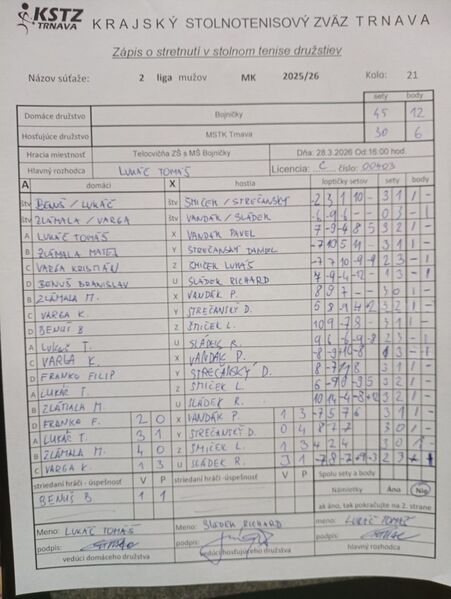 KSTZ TRNAVA KRAJSKÝ STOLNOTENISOVÝ ZVÄZ TRNAVA
Zápis o stretnutí v stolnom tenise družstiev
Názov súťaže: 2 liga mužov MK 2025/26 Kolo: 21
sety body
Domáce družstvo Bojničky 45 12
Hosťujúce družstvo MSTK Trnava 30 6
Hracia miestnosť Telocvičňa ZŠ s MŠ Bojničky Dňa: 28.3.2026 Od:16:00 hod.
Hlavný rozhodca LUKÁČ TOMÁŠ Licencia: C číslo: 00403
A domáci X hostia loptičky setov sety body
štv BENUŠ / LUKÁČ štv SMIČEK / STREČANSKÝ -2 3 1 10 - 3 1 1 -
štv ZLÁMALA / VARGA štv VANDÁK / SLÁDEK -6 -9 -6 - - 0 3 - 1
A LUKÁČ TOMÁŠ X VANDÁK PAVEL 7 -9 -4 8 5 3 2 1 -
B ZLÁMALA MATEJ Y STREČANSKÝ DANIEL -7 10 5 11 - 3 1 1 -
C VARGA KRISTIÁN Z SMIČEK LUKÁŠ -7 7 10 -9 -9 2 3 - 1
D BENUŠ BRANISLAV U SLÁDEK RICHARD 7 -9 -4 -12 - 1 3 - 1
B ZLÁMALA M. X VANDÁK P. 8 9 7 - - 3 0 1 -
C VARGA K. Y STREČANSKÝ D.
D BENUŠ B Z SMIČEK L.
A LUKÁČ T. U SLÁDEK R.
C VARGA K. X VANDÁK P.
D FRANKO FILIP Y STREČANSKÝ D.
A LUKÁČ T. Z SMIČEK L.
B ZLÁMALA M. U SLÁDEK R.
D FRANKO F. 2 0 X VANDÁK P. 1 3 -7 5 7 6 3 1 1 -
A LUKÁČ T. 3 1 Y STREČANSKÝ D. 0 4 8 2 7 3 0 1 -
B ZLÁMALA M. 4 0 Z SMIČEK L. 1 3
C VARGA K. 1 3 U SLÁDEK R. 3 1
striedaní hráči - úspešnosť V P striedaní hráči - úspešnosť V P Spolu sety a body
BENUŠ B 1 1 Námietky Áno Nie
ak áno, tak pokračujte na 2. strane
Meno: LUKÁČ TOMÁŠ Meno: SLÁDEK RICHARD Meno: LUKÁČ TOMÁŠ
podpis: podpis: podpis:
vedúci domáceho družstva vedúci hosťujúceho družstva hlavný rozhodca